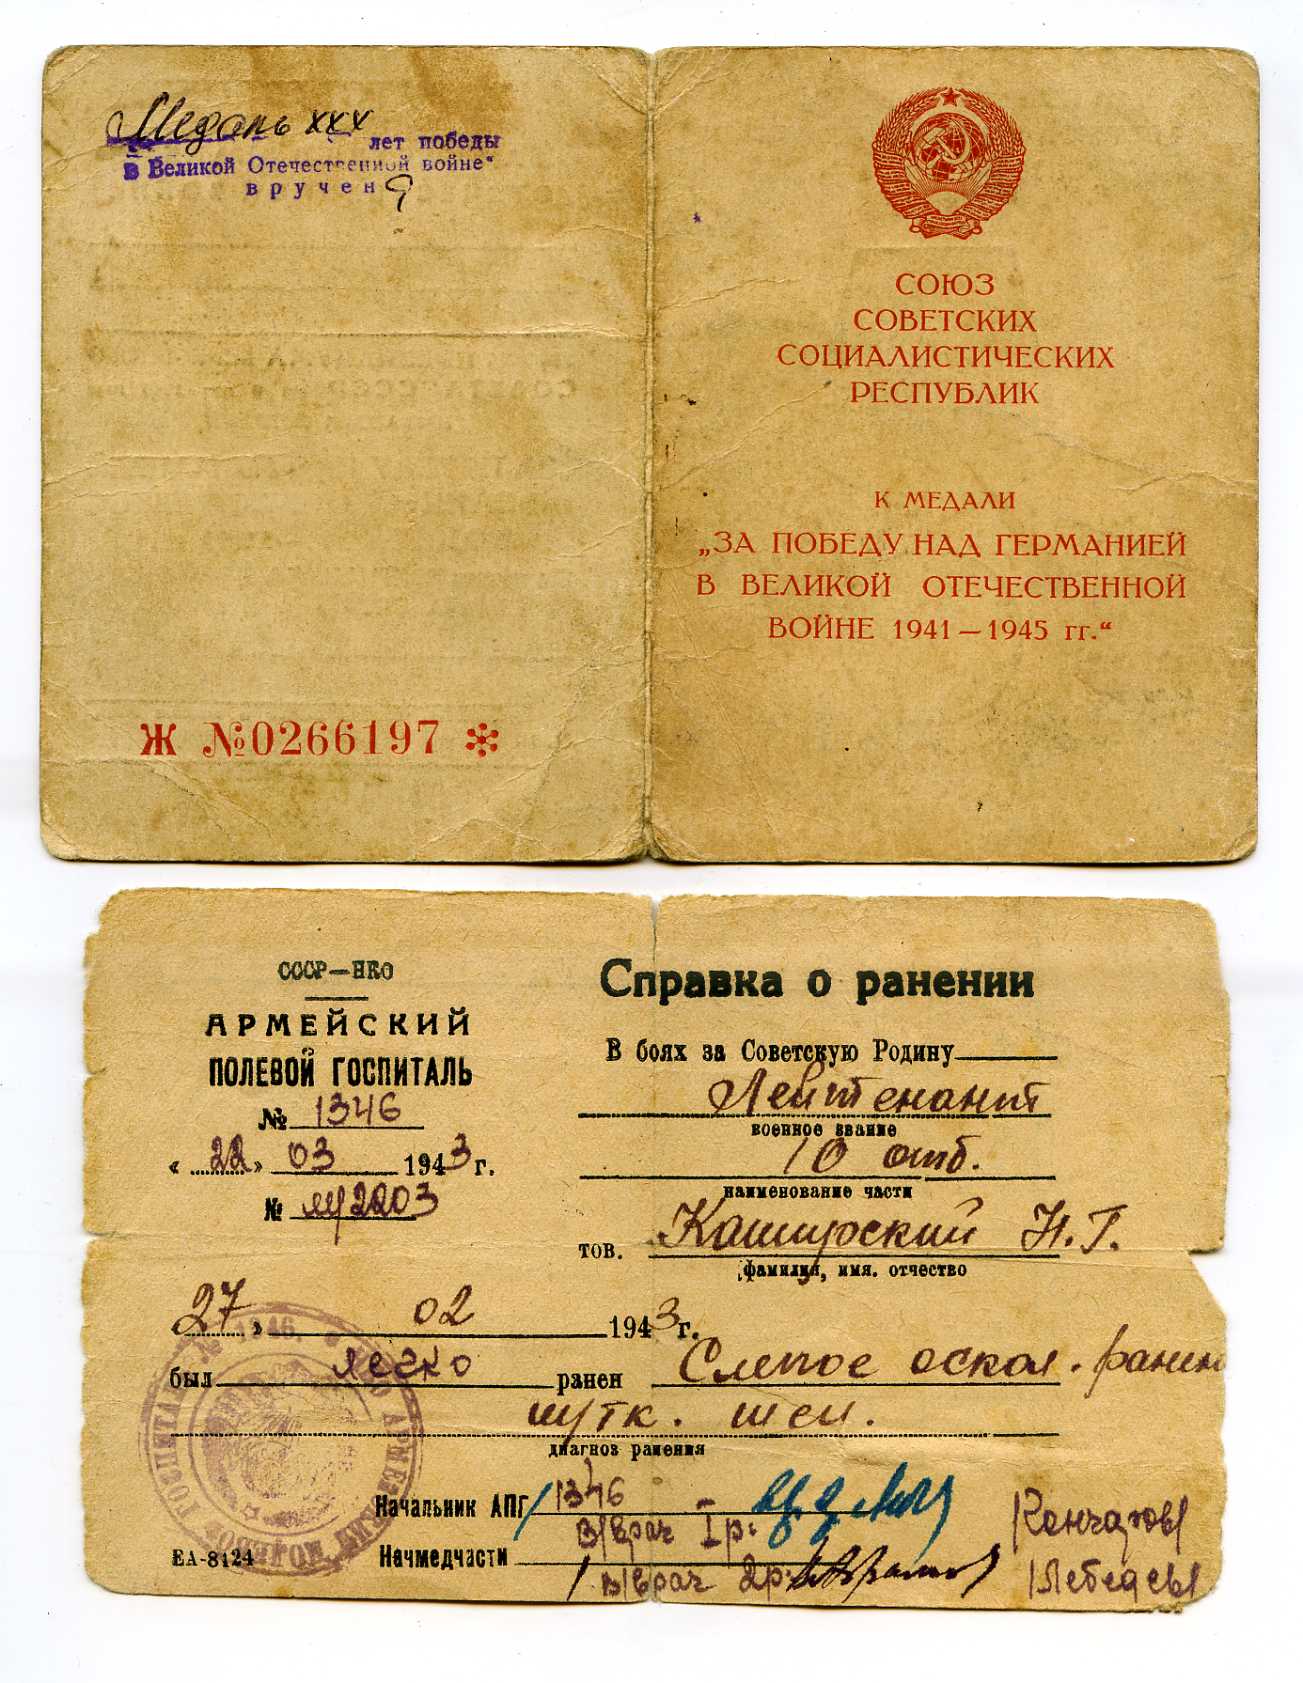 Медаль ХХХ
лет победы
в Великой Отечественной войне"
вручена
Ж №0266197 *
СОЮЗ
СОВЕТСКИХ
СОЦИАЛИСТИЧЕСКИХ
РЕСПУБЛИК
К МЕДАЛИ
„ЗА ПОБЕДУ НАД ГЕРМАНИЕЙ
В ВЕЛИКОЙ ОТЕЧЕСТВЕННОЙ
ВОЙНЕ 1941—1945 гг.“
СССР—НКО
АРМЕЙСКИЙ
ПОЛЕВОЙ ГОСПИТАЛЬ
№ 1346
« 22 » 03 1943 г.
№ 2203
Справка о ранении
В боях за Советскую Родину
Лейтенант
военное звание
10 отб.
наименование части
тов. Каширский Н. Г.
фамилия, имя. отчество
27 » 02 1943 г.
был легко ранен Слепое оскол. ранен
шеи.
диагноз ранения
Начальник АПГ 1346
в/врач I р:
Начмедчасти
в/врач 2р:
/Лебедев/
ЕА-8124